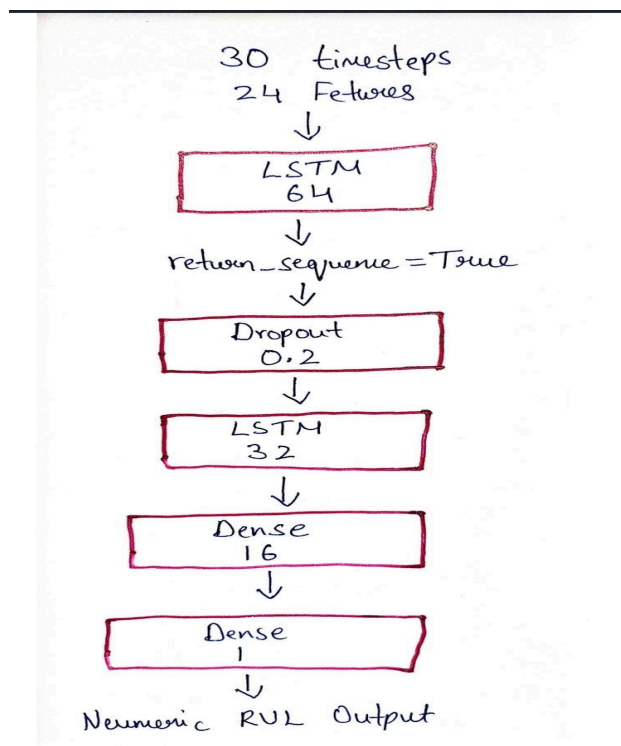 30 timesteps
24 Fetures
LSTM
64
return_sequence = True
Dropout
0.2
LSTM
32
Dense
16
Dense
1
Neumeric RUL Output